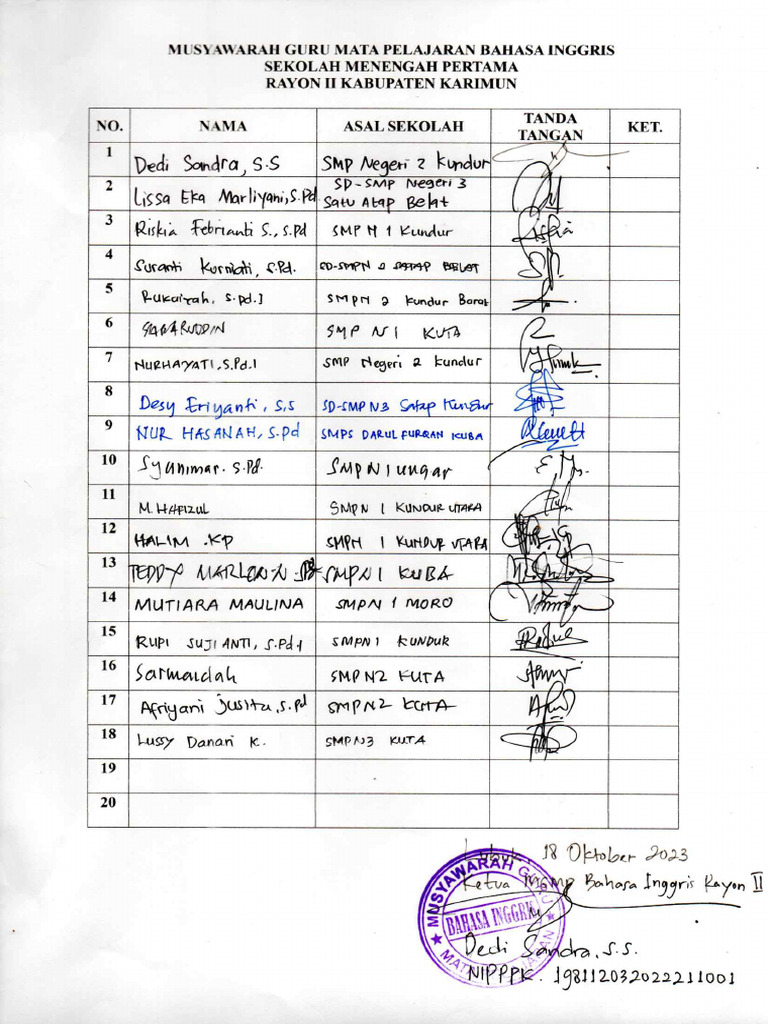 MUSYAWARAH GURU MATA PELAJARAN BAHASA INGGRIS
SEKOLAH MENENGAH PERTAMA
RAYON II KABUPATEN KARIMUN
NO. NAMA ASAL SEKOLAH TANDA TANGAN KET.
1 Dedi Sandra, S.S SMP Negeri 2 Kundur
2 Lissa Eka Marliyani, S.Pd SD-SMP Negeri 3 Satu Atap Belat
3 Riskia Febrianti S., S.Pd SMP N 1 Kundur
4 Suranti Kurniati, S.Pd. SD-SMPN 2 SATAP BELAT
5 Rukaiyah, S.Pd.I SMPN 2 Kundur Barat
6 SMP N 1 KUTA
7 NURHAYATI, S.Pd.I SMP Negeri 2 Kundur
8 Desy Eriyanti, S.S SD-SMP N3 Satap Kundur
9 NUR HASANAH, S.Pd SMPS DARUL FURQAN KUBA
10 Syanimar. S.Pd. SMPN 1 Ungar
11 M. HAFIZUL SMPN 1 KUNDUR UTARA
12 HALIM .KP SMPN 1 KUNDUR UTARA
13 TEDDY MARLON SMPN 1 KUBA
14 MUTIARA MAULINA SMPN 1 MORO
15 RUPI SUJIANTI, S.Pd.I SMPN 1 KUNDUR
16 Sarmaidah SMPN2 KUTA
17 Afriyani Jusita, S.Pd SMPN2 KUTA
18 Lussy Danari K. SMPN3 KUTA
19
20
18 Oktober 2023
Ketua MGMP Bahasa Inggris Rayon II
MUSYAWARAH GURU
BAHASA INGGRIS
Dedi Sandra, S.S.
NIPPPK. 198112032022211001